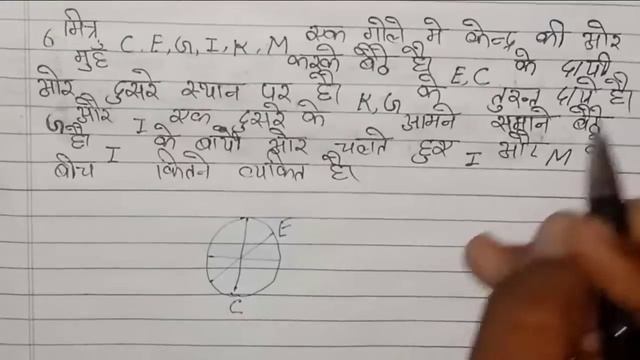 6 मित्र C, E, G, I, K, M एक गोले मे केन्द्र की ओर
मुहँ करके बैठे है। E, C के दायी
ओर दुसरे स्थान पर है। K, G के तुरन्त दाये है।
G और I एक दुसरे के आमने सामने बैठे
है। I के बायी ओर चलते हुए I और M के
बीच कितने व्यक्ति है।
E
C